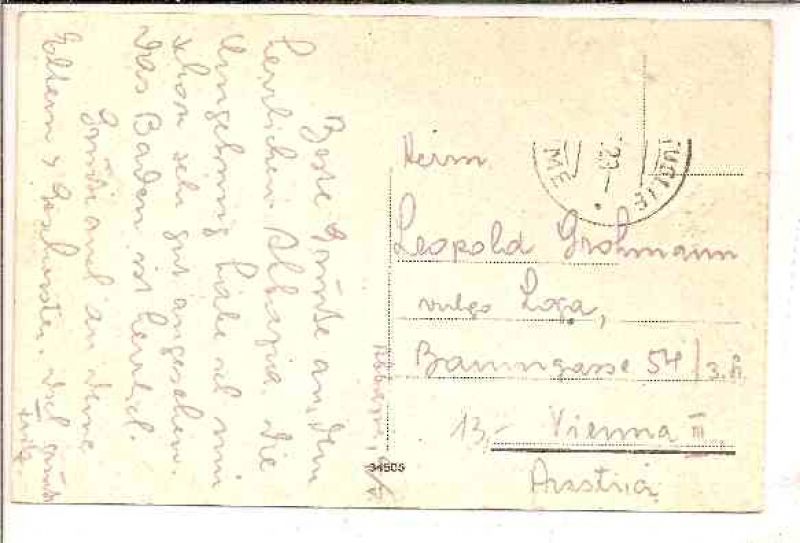 Beste Grüße aus dem
herrlichen Abbazia. Die
Umgebung habe ich mir
schon sehr gut angesehen.
Das Baden ist herrlich.
Grüße auch an deine
Eltern & Geschwister. Viel Grüße
Abbazia,
34505
Herrn
Leopold Grohmann
vulgo Loga,
Baumgasse 54/3.
13,- Vienna III
Austria
29